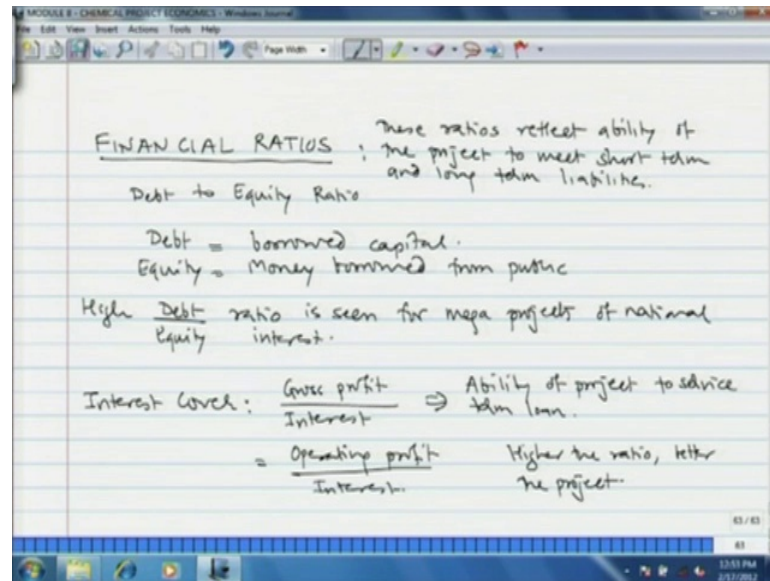 MODULE 8 - CHEMICAL PROJECT ECONOMICS - Windows Journal
File Edit View Insert Actions Tools Help
Page Width
FINANCIAL RATIOS : These ratios reflect ability of
the project to meet short term
and long term liabilities.
Debt to Equity Ratio
Debt = borrowed capital.
Equity = Money borrowed from public
High Debt ratio is seen for mega projects of national
Equity interest.
Interest Cover: Gross profit ⇒ Ability of project to service
Interest term loan.
= Operating profit Higher the ratio, better
Interest. the project.
63 / 63
63
12:53 PM
2/17/2012